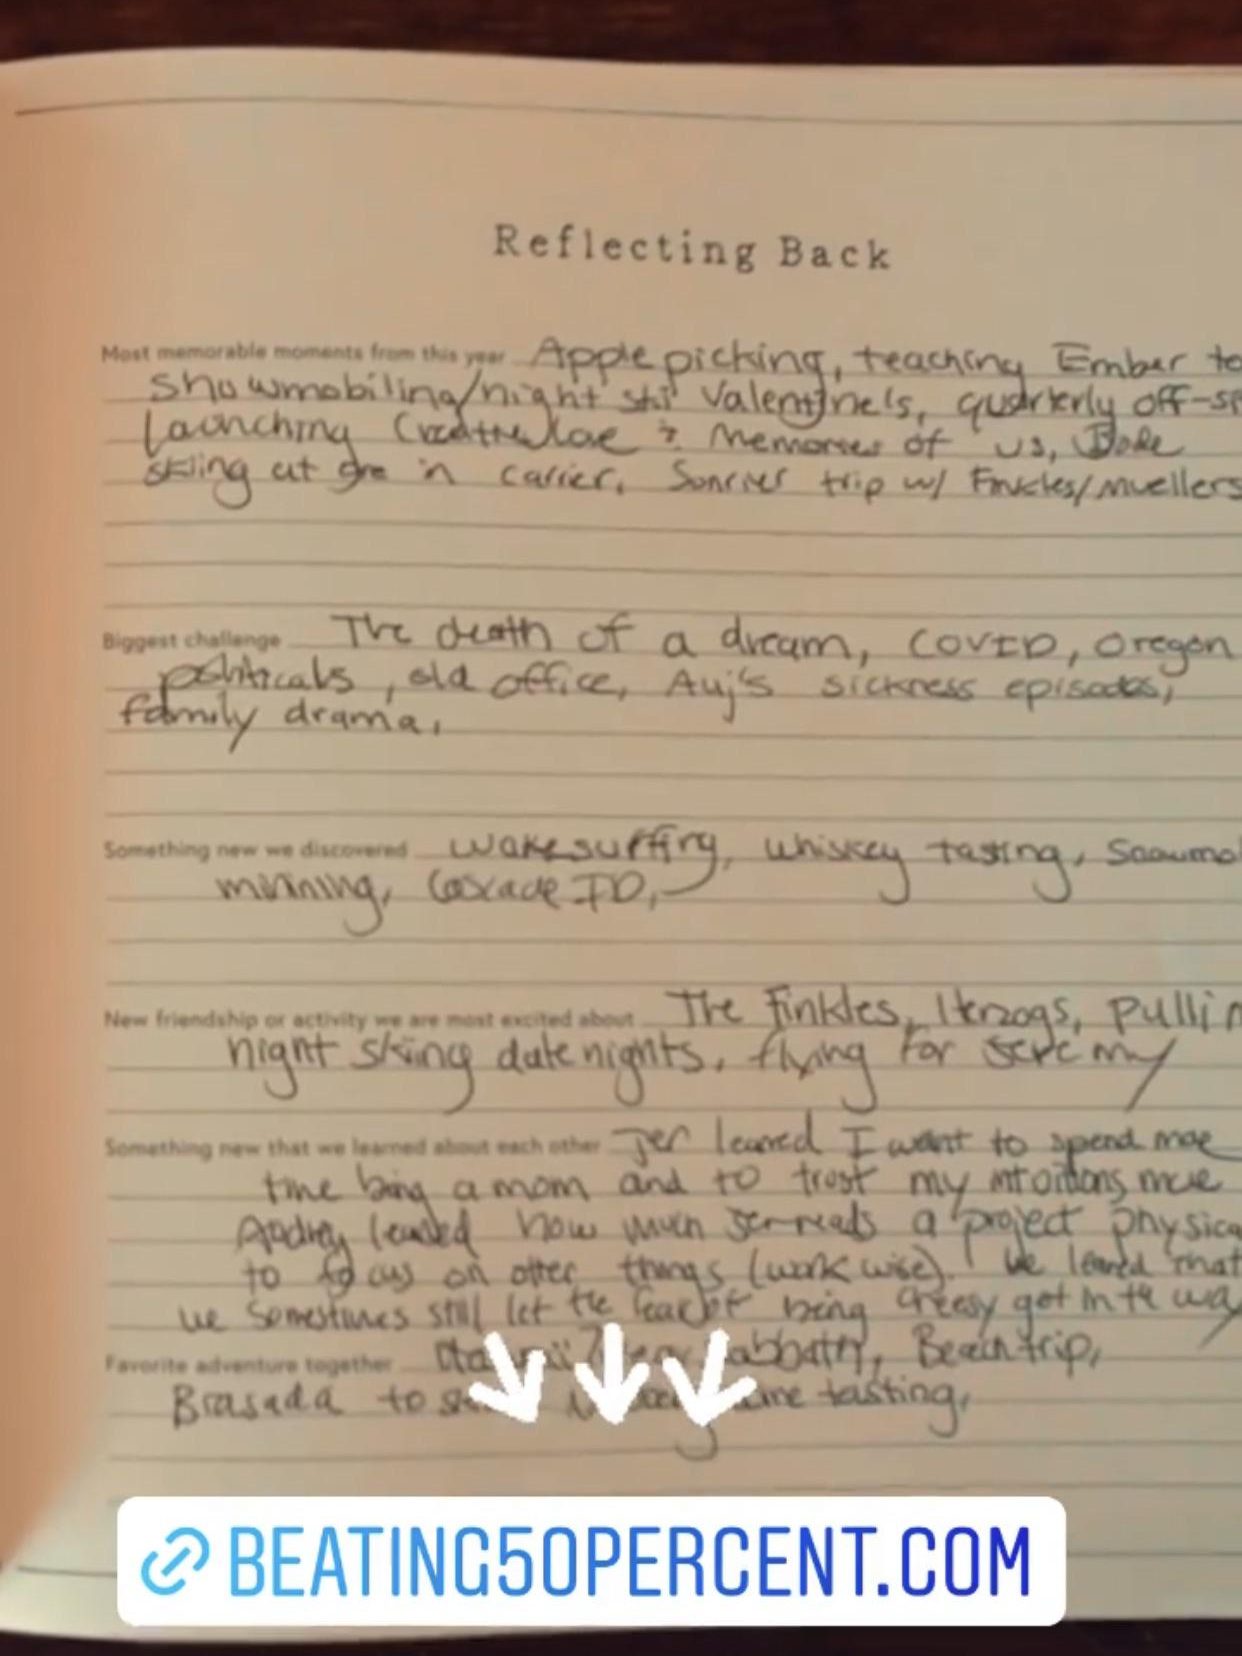 Reflecting Back
Most memorable moments from this year Apple picking, teaching Ember to
snowmobiling/night ski Valentine's, quarterly off-si
Launching Creative Love & Memories of us, Bode
skiing at one in carrier. Sunriver trip w/ Finkles/Muellers
Biggest challenge The death of a dream, COVID, Oregon
politicals, old office, Auj's sickness episodes,
family drama,
Something new we discovered wakesurfing, whiskey tasting, Snowmo
mining, Cascade ID,
New friendship or activity we are most excited about The Finkles, Herzogs, pullin
night skiing date nights, flying for Jeremy
Something new that we learned about each other Jer learned I want to spend more
time being a mom and to trust my intuitions more
Audrey learned how much Jer needs a project physica
to focus on other things (work wise). We learned that
we sometimes still let the fear of being cheesy get in the way
Favorite adventure together Sabbath, Beach trip,
Brasada to tasting,
BEATING50PERCENT.COM